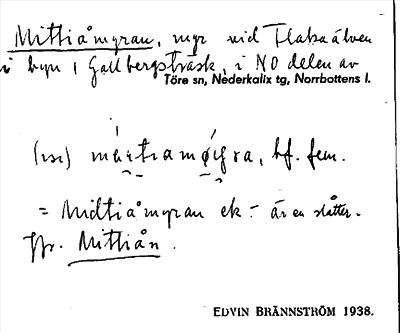 Mittiåmyran, myr vid Flakaälven
i byn i Gallbergsträsk, i NO delen av
Töre sn, Nederkalix tg, Norrbottens l.
bf. fem.
= Midtiåmyran ek - är en slåtter.
Jfr. Mittiån.
EDVIN BRÄNNSTRÖM 1938.